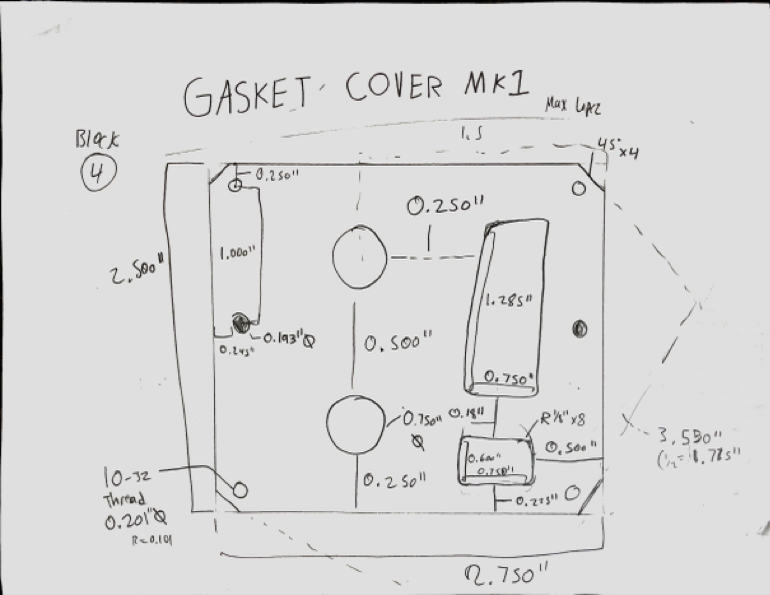 GASKET COVER MK1
Max
1.5
Block
4
45° x4
0.250"
0.250"
1.000"
2.500"
1.285"
0.193"Ø
0.245"
0.500"
0.750"
0.750"
Ø
0.18"
R 1/8" x8
0.500"
3.550"
0.600"
0.750"
10-32
Thread
0.201"Ø
R=0.101
0.250"
0.225"
2.750"